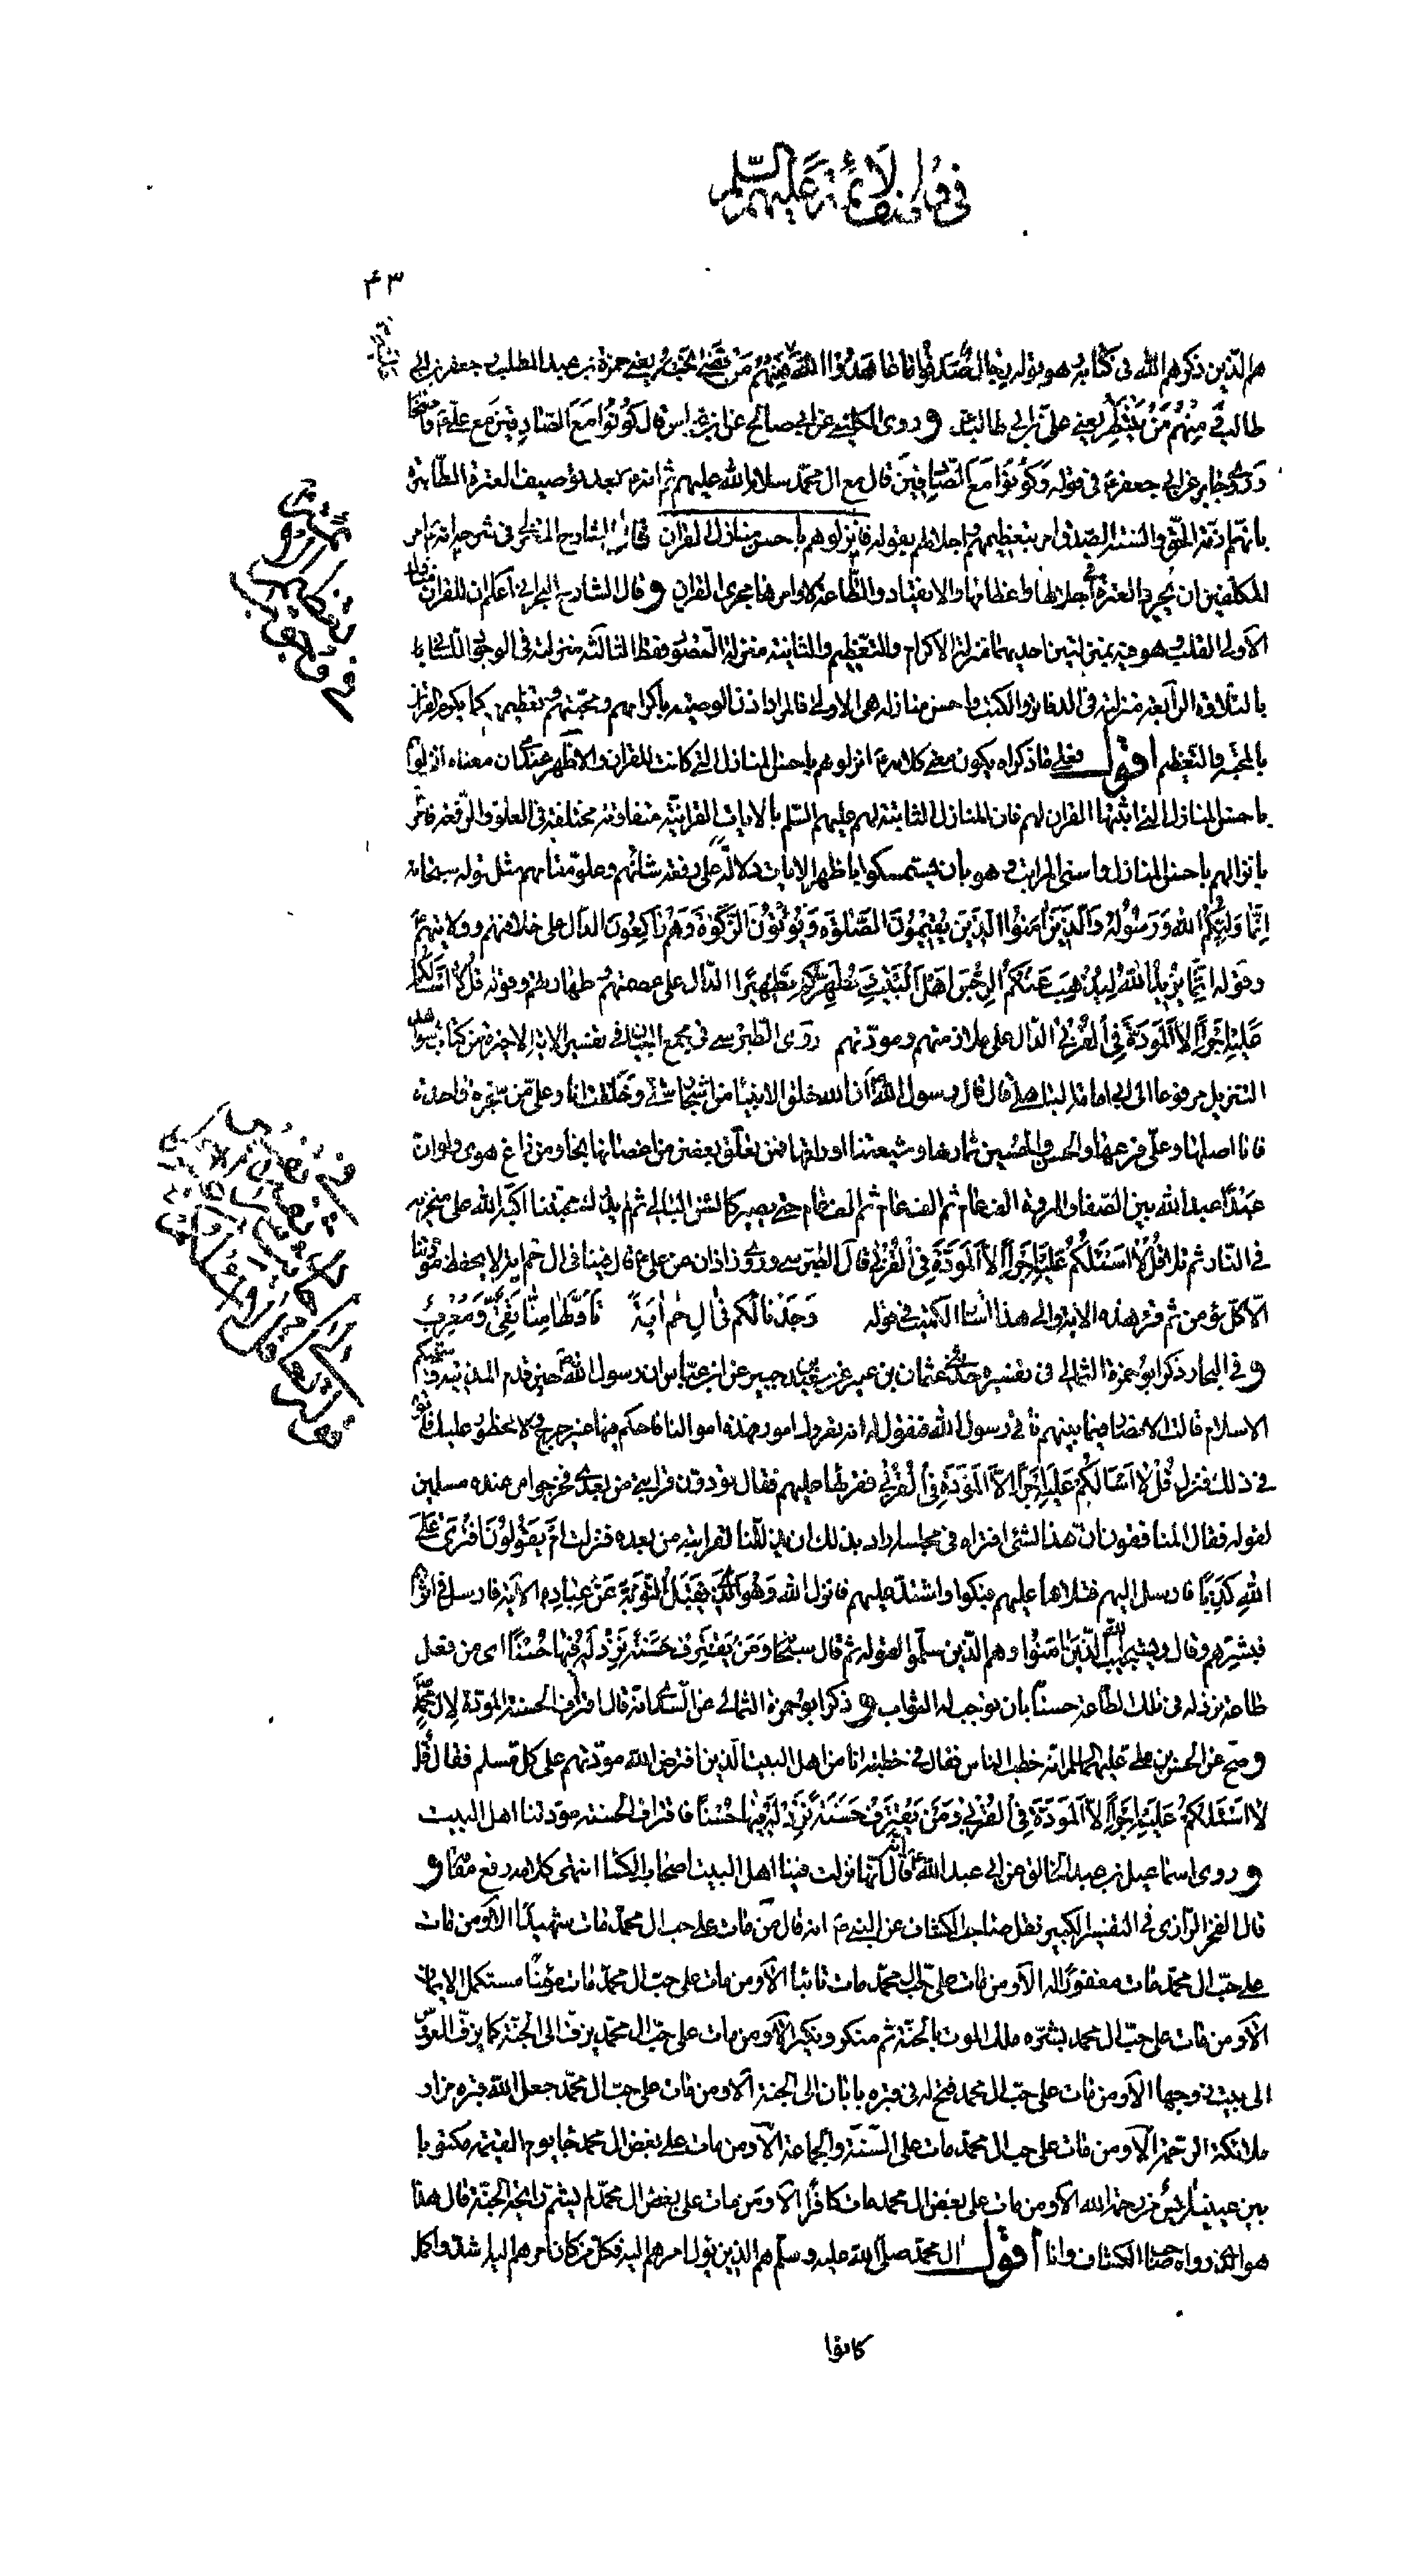 في مناقب الأئمة عليهم السلم
۴۳
هم الذين ذكرهم الله فى كتابه هو قوله رجال صدقوا ما عاهدوا الله فمنهم من قضى نحبه يعني حمزة بن عبد المطلب وجعفر بن ابي
طالب و منهم من ينتظر يعني علي بن ابي طالب و روى الكلبي عن ابي صالح عن ابن عباس قال كونوا مع الصادقين مع علي و اصحابه
وروى جابر عن ابي جعفر في قوله وكونوا مع الصادقين قال مع ال محمد سلام الله عليهم ثم انه بعد توصيف العترة الطاهرة
بانهم ازمة الحق و السنة الصدق امر بتعظيمهم و اجلالهم بقوله فانزلوهم باحسن منازل القران قال الشارح المعتزلى فى شرحه انه امر
المكلفين ان يجروا العترة في اجلالها واعظامها والانقياد لها والطاعة لاوامرها مجرى القران و قال الشارح البحراني اعلم ان للقران منازل
الاولى القلب و هو فيه بمنزلتين احديهما منزلة الاكرام والتعظيم والثانية منزلة التصور فقط الثالثة منزلته فى الوجود اللساني
بالتلاوة الرابعة منزلته فى الدفاتر والكتب واحسن منازله هى الاولى فالمراد اذن الوصية باكرامهم ومحبتهم وتعظيمهم كما يكرم القران
بالمحبة والتعظيم اقول فعلى ما ذكراه يكون معنى كلامه انزلوهم باحسن المنازل التي كانت للقران والاظهر عندي ان معناه انزلوهم
باحسن المنازل التي اثبتها القران لهم فان المنازل الثابتة لهم عليهم السلم بالايات القرانية متفاوتة مختلفة فى العلو والرفعة فامر
بانزالهم باحسن المنازل واسنى المراتب و هو بان يستمسكوا باظهر الايات دلالة على رفعة شانهم وعلو مقامهم مثل قوله سبحانه
انما وليكم الله ورسوله والذين امنوا الذين يقيمون الصلوة ويؤتون الزكوة وهم راكعون الدال على خلافتهم وولايتهم
وقوله انما يريد الله ليذهب عنكم الرجس اهل البيت ويطهركم تطهيرا الدال على عصمتهم وطهارتهم وقوله قل لا اسئلكم
عليه اجرا الا المودة في القربى الدال على ملازمتهم ومودتهم روى الطبرسي في مجمع البيان في تفسير الاية الاخيرة من كتاب شواهد
التنزيل مرفوعا الى ابي امامة الباهلي قال قال رسول الله ان الله خلق الانبياء من اشجار شتى وخلقت انا وعلي من شجرة واحدة
فانا اصلها وعلي فرعها والحسن والحسين ثمارها وشيعتنا اوراقها فمن تعلق بغصن من اغصانها نجا ومن زاغ هوى ولو ان
عبدا عبد الله بين الصفا والمروة الف عام ثم الف عام ثم الف عام حتى يصير كالشن البالي ثم لم يدرك محبتنا اكبه الله على منخريه
في النار ثم تلا قل لا اسئلكم عليه اجرا الا المودة في القربى قال الطبرسي وروى زاذان عن علي ع قال فينا في ال حم اية لا يحفظ مودتنا
الا كل مؤمن ثم قرء هذه الاية والى هذا اشار الكميت في قوله وجدنا لكم في ال حم اية تاولها منا تقي و معرب
و في البحار ذكر ابو حمزة الثمالي في تفسيره حدثني عثمان بن عمير عن سعيد بن جبير عن ابن عباس ان رسول الله حين قدم المدينة واستحكم
الاسلام قالت الانصار فيما بينهم نأتي رسول الله فنقول له انه تعروك امور فهذه اموالنا فاحكم فيها غير حرج ولا محظور عليك فاتوه
في ذلك فنزل قل لا اسألكم عليه اجرا الا المودة في القربى فقرئها عليهم فقال تودون قرابتي من بعدي فخرجوا من عنده مسلمين
لقوله فقال المنافقون ان هذا لشئ افتراه في مجلسه اراد بذلك ان يذللنا لقرابته من بعده فنزلت ام يقولون افترى على
الله كذبا فارسل اليهم فتلاها عليهم فبكوا واشتد عليهم فانزل الله وهو الذي يقبل التوبة عن عباده الاية فارسل في اثرهم
فبشرهم وقال ويستجيب الله الذين امنوا وهم الذين سلموا لقوله ثم قال سبحانه ومن يقترف حسنة نزد له فيها حسنا اى من فعل
طاعة نزد له فى تلك الطاعة حسنا بان نوجب له الثواب و ذكر ابو حمزة الثمالي عن السدي انه قال اقتراف الحسنة المودة لال محمد
و صح عن الحسن بن علي عليهما السلم انه خطب الناس فقال في خطبته انا من اهل البيت الذين افترض الله مودتهم على كل مسلم فقال قل
لا اسئلكم عليه اجرا الا المودة في القربى ومن يقترف حسنة نزد له فيها حسنا فاقتراف الحسنة مودتنا اهل البيت
و روى اسماعيل بن عبد الخالق عن ابي عبد الله انه قال انها نزلت فينا اهل البيت اصحاب الكسا انتهى كلامه رفع مقامه و
قال الفخر الرازى في التفسير الكبير نقل صاحب الكشاف عن النبي ص انه قال من مات على حب ال محمد مات شهيدا الا ومن مات
على حب ال محمد مات مغفورا له الا ومن مات على حب ال محمد مات تائبا الا ومن مات على حب ال محمد مات مؤمنا مستكمل الايمان
الا ومن مات على حب ال محمد بشره ملك الموت بالجنة ثم منكر ونكير الا ومن مات على حب ال محمد يزف الى الجنة كما يزف العروس
الى بيت زوجها الا ومن مات على حب ال محمد فتح له فى قبره بابان الى الجنة الا ومن مات على حب ال محمد جعل الله قبره مزار
ملائكة الرحمة الا ومن مات على حب ال محمد مات على السنة والجماعة الا ومن مات على بغض ال محمد جا يوم القيمة مكتوبا
بين عينيه ايس من رحمة الله الا ومن مات على بغض ال محمد مات كافرا الا ومن مات على بغض ال محمد لم يشم رائحة الجنة قال هذا
هو الذي رواه صاحب الكشاف وانا اقول ال محمد صلى الله عليه وسلم هم الذين يؤل امرهم اليه فكل من كان امرهم اليه اشد واكمل
كانوا